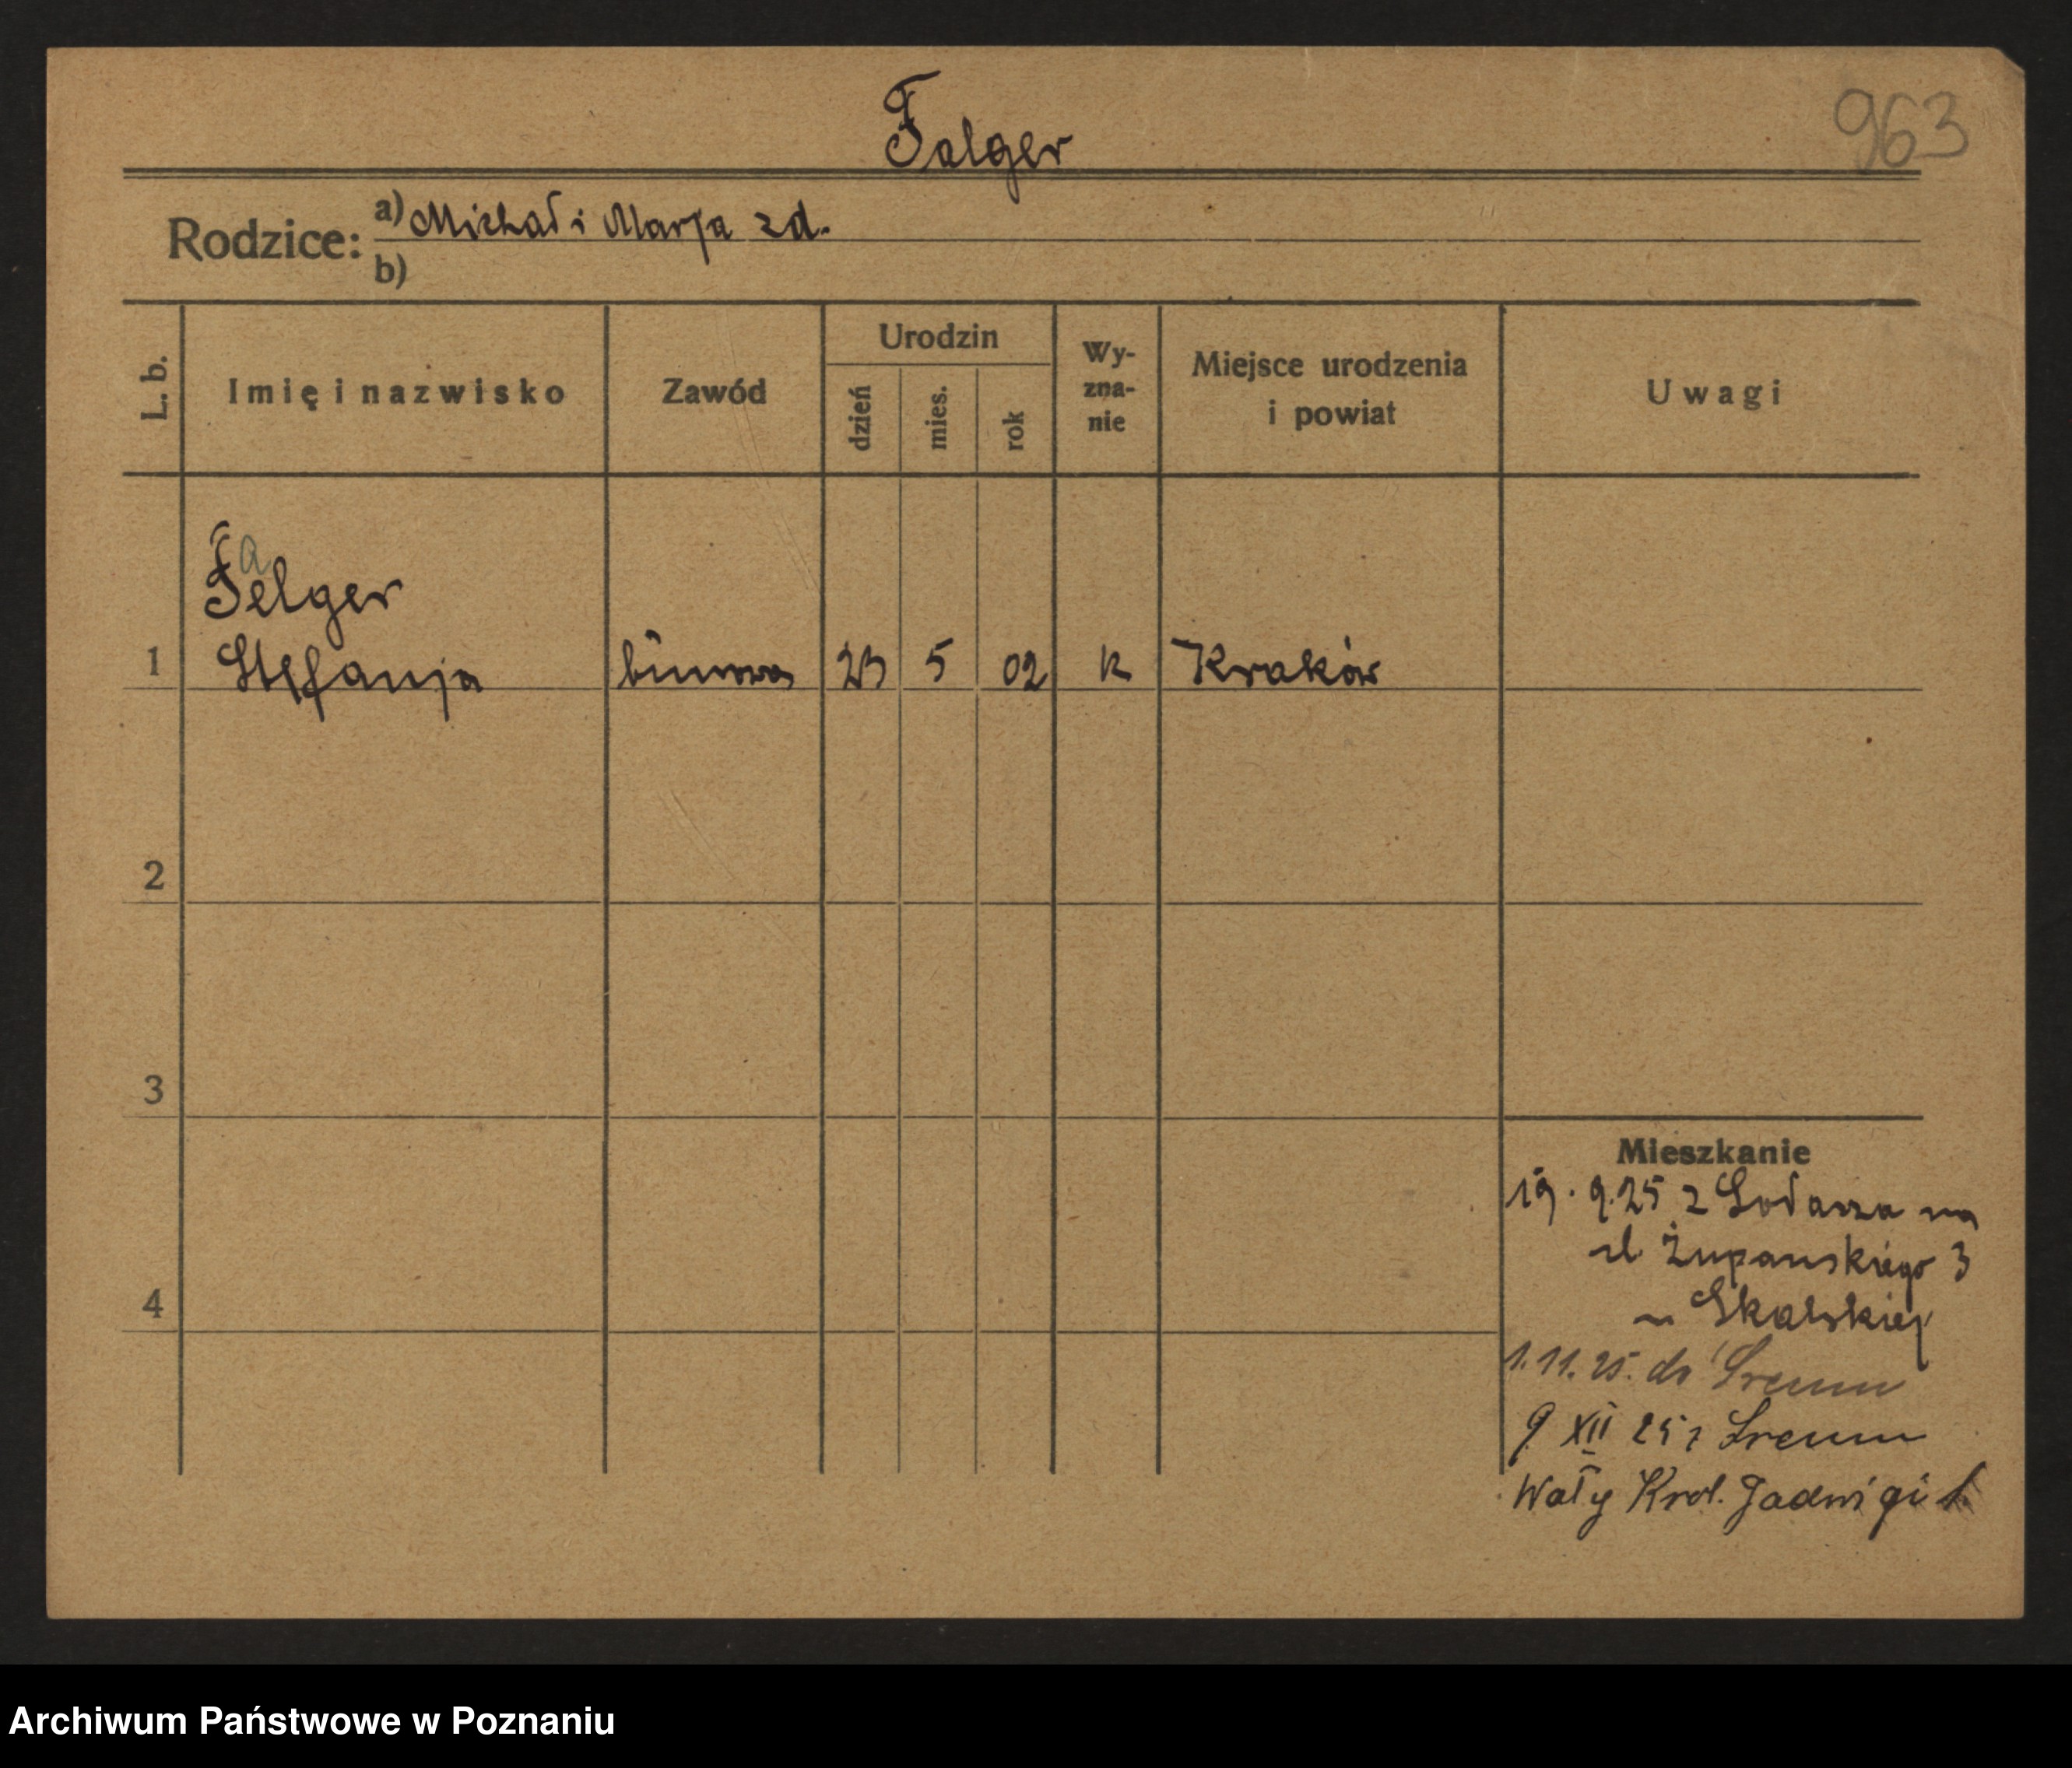 Falger
963
Rodzice: a) Michał i Marja zd.
b)
L. b. Imię i nazwisko Zawód Urodzin dzień mies. rok Wy-zna-nie Miejsce urodzenia i powiat Uwagi
a
Felger
1 Stefanja biurowa 23 5 02 k Kraków
2
3
Mieszkanie
19. 9.25 z na
ul. Żupańskiego 3
4
u Skalskiej
1.11.25. do Śremu
9 XII 25 z Śremu
Wały Król. Jadwigi
Archiwum Państwowe w Poznaniu